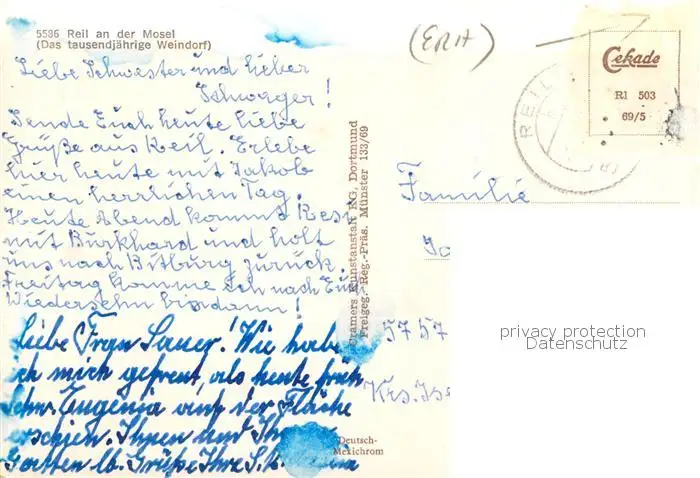 5586 Reil an der Mosel
(Das tausendjährige Weindorf)
Liebe Schwester und lieber
Schwager!
Sende Euch heute liebe
Grüße aus Reil. Erlebe
hier heute mit Jakob
einen herrlichen Tag.
Heute Abend kommt Resi
mit Burkhard und holt
uns nach Bitburg zurück.
Freitag komme ich nach Euch
Wiedersehn bis dann!
Liebe Frau Sauer! Wie habe
ich mich gefreut, als heute früh
Schw. Eugenia auf der Fläche
erschien. Ihnen und Ih
Gatten lb. Grüße Ihre S. M.
Cramers Kunstanstalt KG, Dortmund
Freigeg. Reg.-Präs. Münster 133/69
Deutsch-
Mexichrom
(ERH)
Cekade
Rl 503
69/5
REIL
Familie
Jo
5757
Krs. Ise
privacy protection
Datenschutz